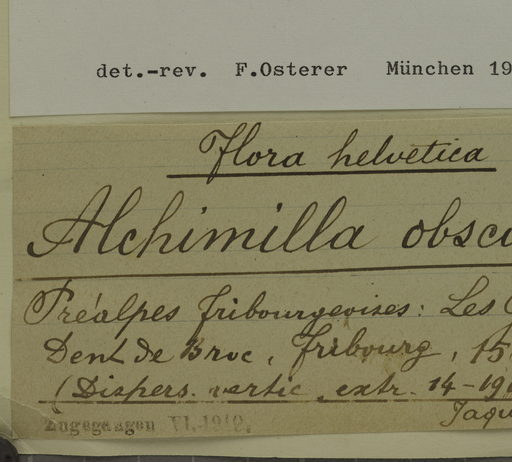 det.-rev. F.Osterer München 19
Flora helvetica
Alchimilla obscu
Préalpes fribourgeoises: Les
Dent de Broc, fribourg, 15
(Dispers. vertic. extr. 14-19
Zugegangen VI.1910.
Jaqu